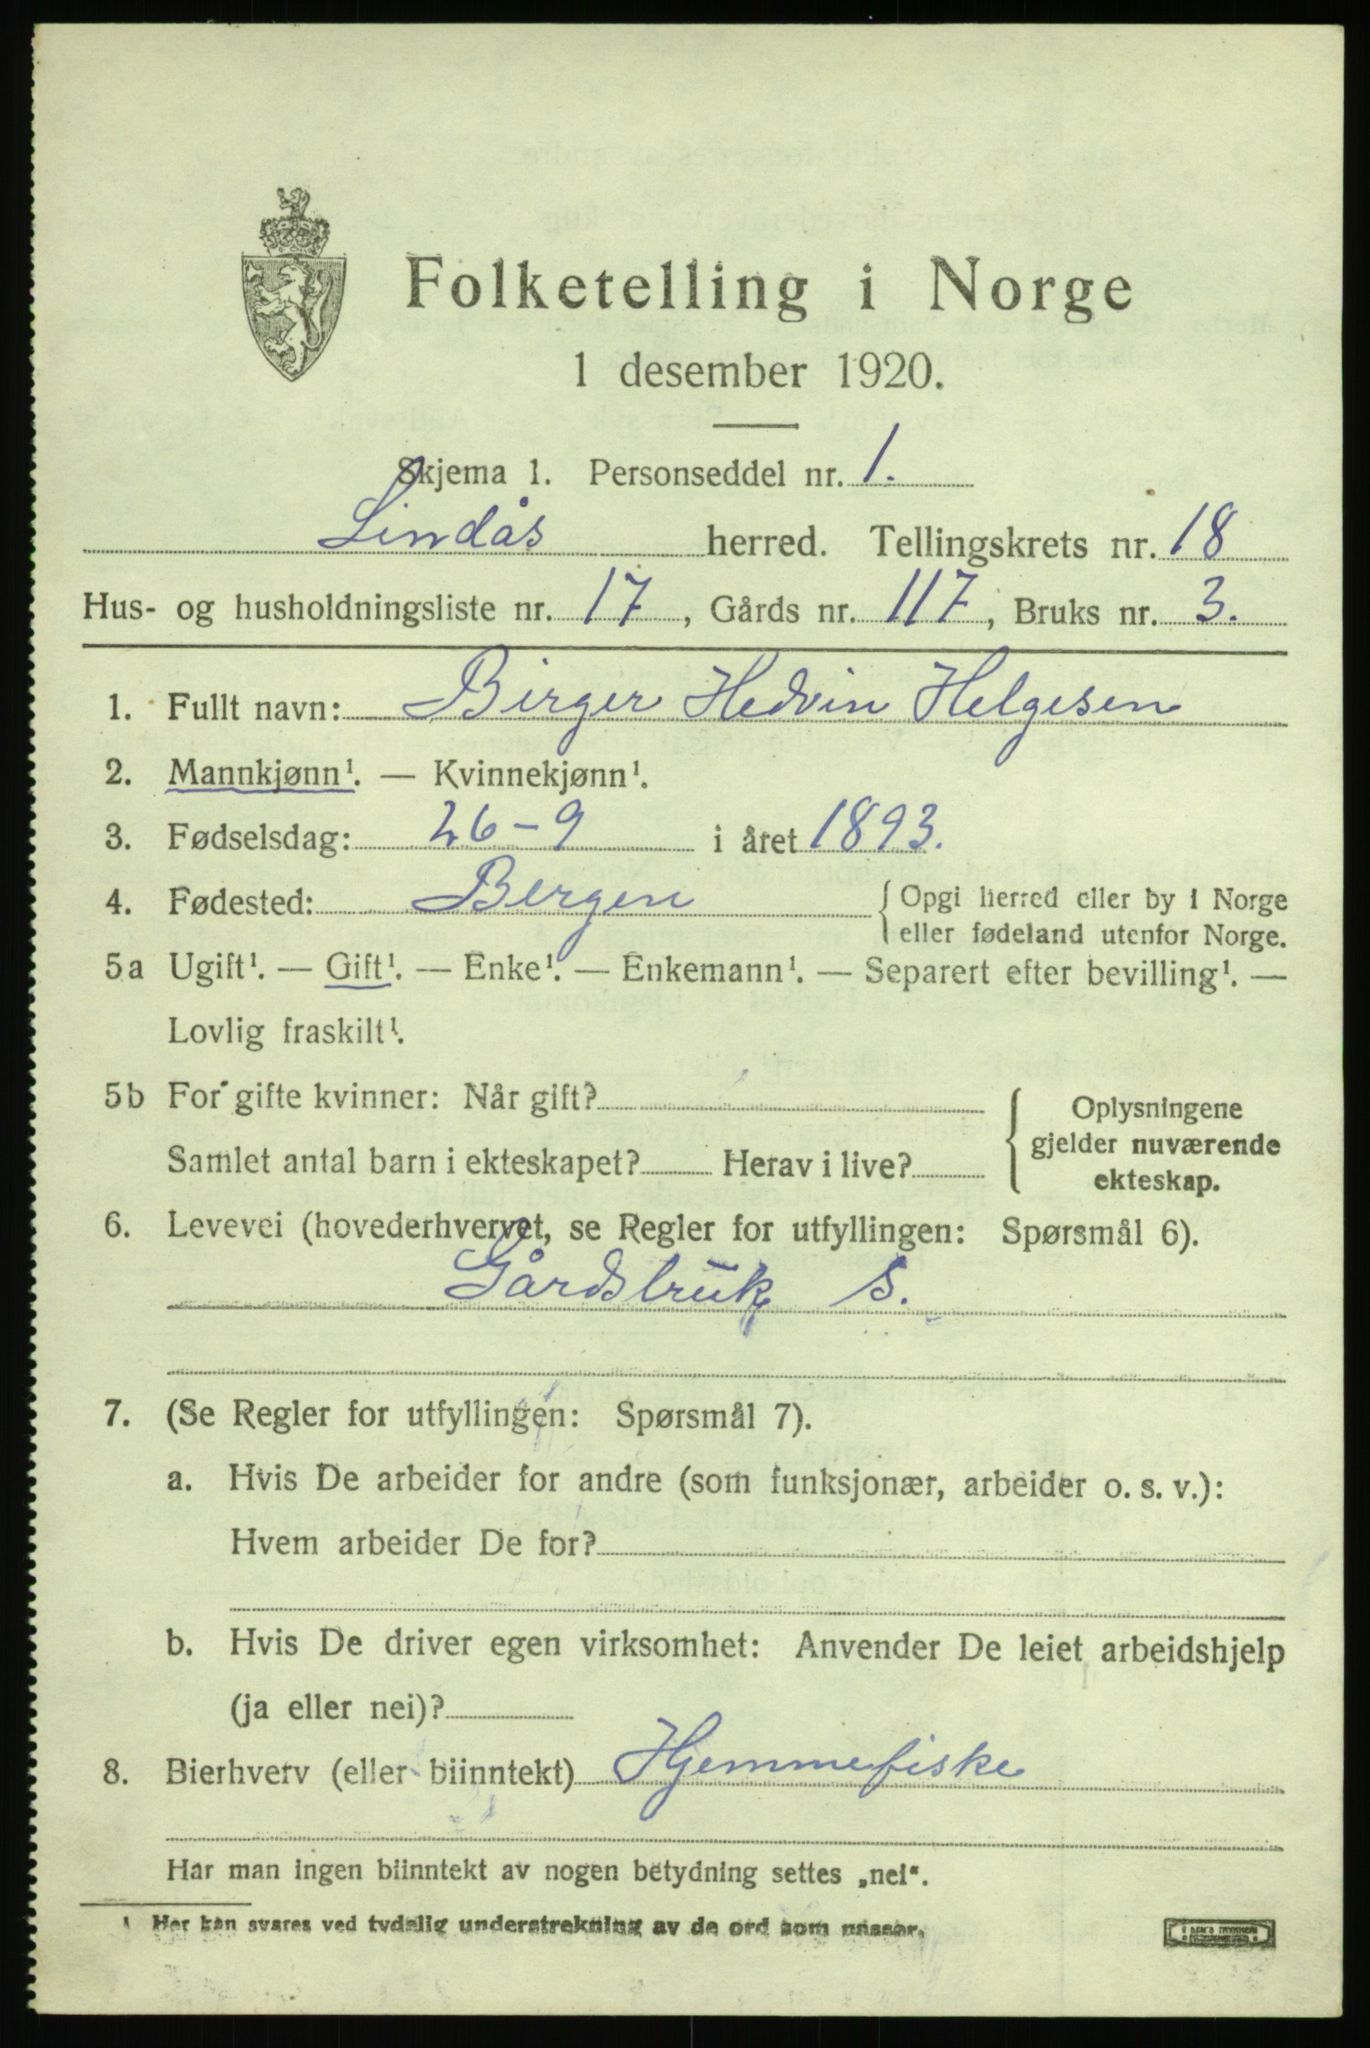 Folketelling i Norge
1 desember 1920.
Skjema 1. Personseddel nr. 1.
Lindås herred. Tellingskrets nr. 18
Hus- og husholdningsliste nr. 17, Gårds nr. 117, Bruks nr. 3.
1. Fullt navn: Birger Hedvin Helgesen
2. Mannkjønn¹. — Kvinnekjønn¹.
3. Fødselsdag: 26-9 i året 1893.
4. Fødested: Bergen { Opgi herred eller by i Norge
eller fødeland utenfor Norge.
5a Ugift¹. — Gift¹. — Enke¹. — Enkemann¹. — Separert efter bevilling¹. —
Lovlig fraskilt¹.
5b For gifte kvinner: Når gift? { Oplysningene
gjelder nuværende
Samlet antal barn i ekteskapet? Herav i live?
ekteskap.
6. Levevei (hovederhvervet, se Regler for utfyllingen: Spørsmål 6).
Gårdsbruk S.
7. (Se Regler for utfyllingen: Spørsmål 7).
a. Hvis De arbeider for andre (som funksjonær, arbeider o. s. v.):
Hvem arbeider De for?
b. Hvis De driver egen virksomhet: Anvender De leiet arbeidshjelp
(ja eller nei)?
8. Bierhverv (eller biinntekt) Hjemmefiske
Har man ingen biinntekt av nogen betydning settes „nei“.
¹ Her kan svares ved tydelig understrekning av de ord som passer.